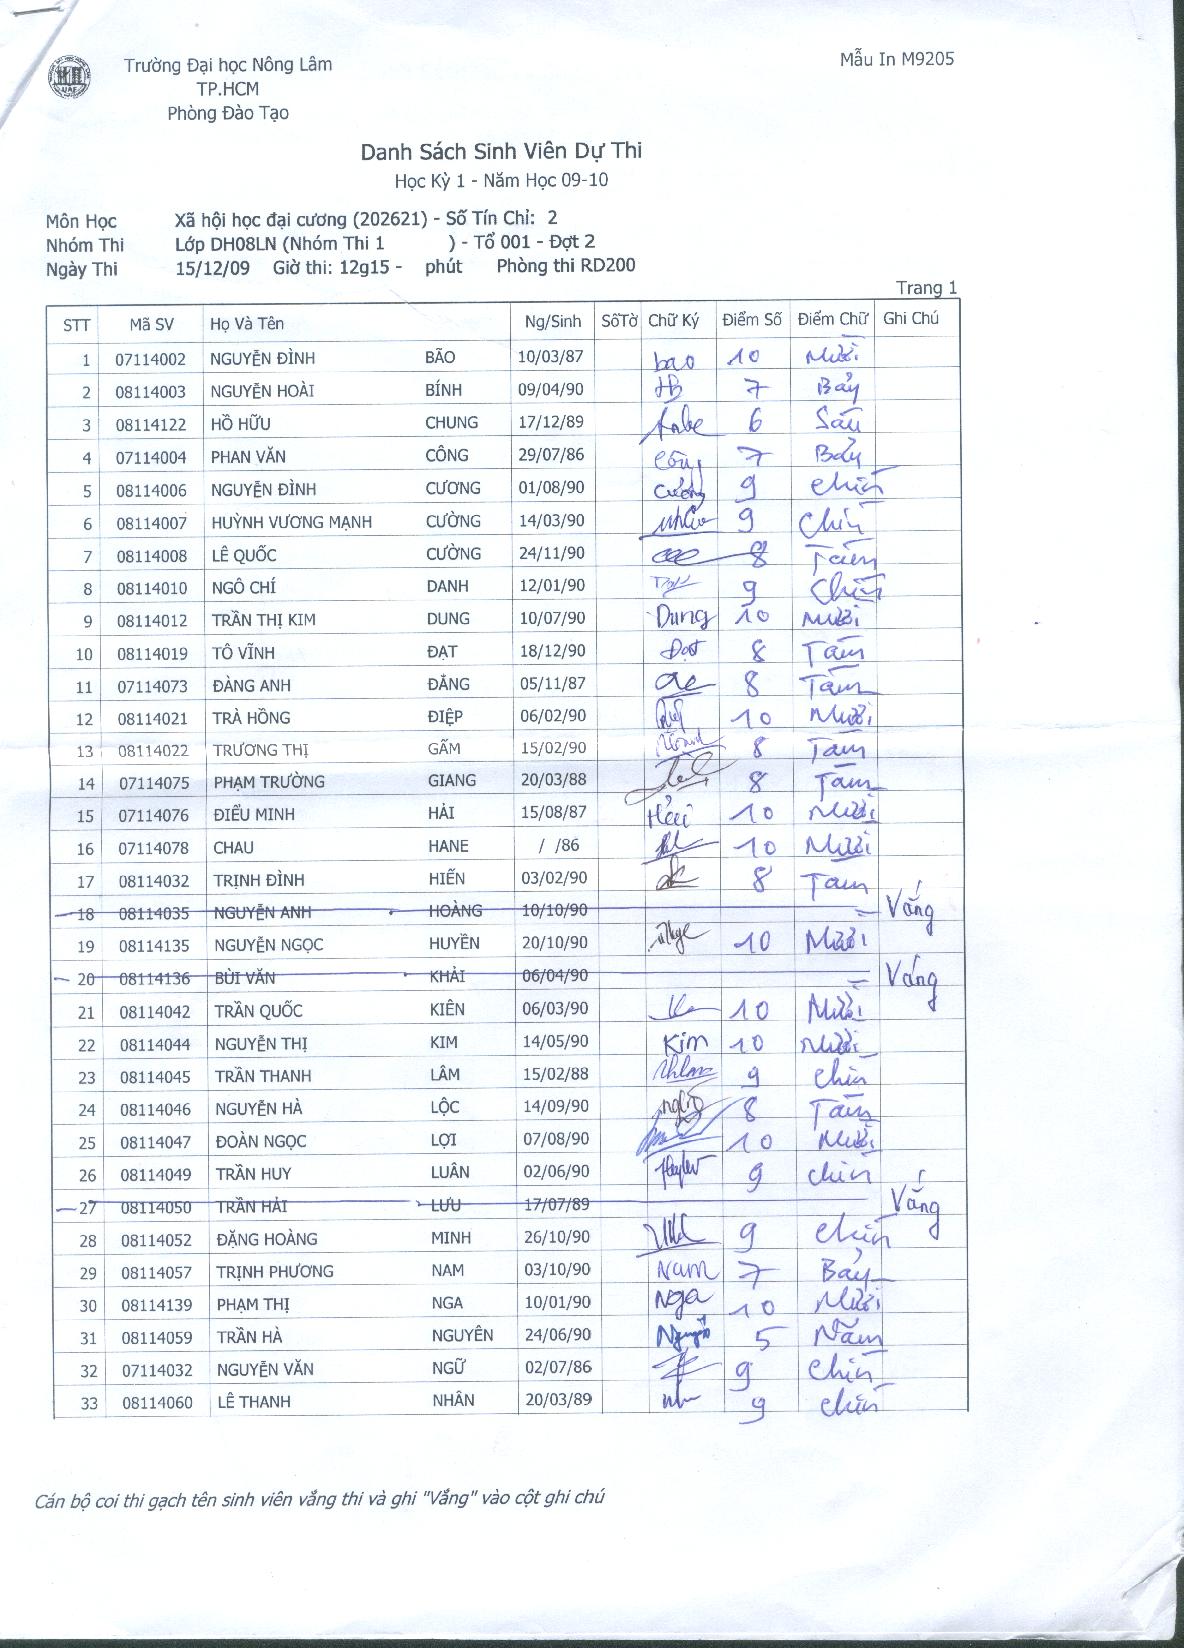 Trường Đại học Nông Lâm
TP.HCM
Phòng Đào Tạo
Mẫu In M9205
Danh Sách Sinh Viên Dự Thi
Học Kỳ 1 - Năm Học 09-10
Môn Học Xã hội học đại cương (202621) - Số Tín Chỉ: 2
Nhóm Thi Lớp DH08LN (Nhóm Thi 1 ) - Tổ 001 - Đợt 2
Ngày Thi 15/12/09 Giờ thi: 12g15 - phút Phòng thi RD200
Trang 1
STT Mã SV Họ Và Tên Ng/Sinh SốTờ Chữ Ký Điểm Số Điểm Chữ Ghi Chú
1 07114002 NGUYỄN ĐÌNH BÃO 10/03/87 bao 10 Mười
2 08114003 NGUYỄN HOÀI BÍNH 09/04/90 7 Bảy
3 08114122 HỒ HỮU CHUNG 17/12/89 6 Sáu
4 07114004 PHAN VĂN CÔNG 29/07/86 Công 7 Bảy
5 08114006 NGUYỄN ĐÌNH CƯƠNG 01/08/90 Cương 9 Chín
6 08114007 HUỲNH VƯƠNG MẠNH CƯỜNG 14/03/90 9 Chín
7 08114008 LÊ QUỐC CƯỜNG 24/11/90 8 Tám
8 08114010 NGÔ CHÍ DANH 12/01/90 9 Chín
9 08114012 TRẦN THỊ KIM DUNG 10/07/90 Dung 10 Mười
10 08114019 TÔ VĨNH ĐẠT 18/12/90 Đạt 8 Tám
11 07114073 ĐÀNG ANH ĐẲNG 05/11/87 8 Tám
12 08114021 TRÀ HỒNG ĐIỆP 06/02/90 10 Mười
13 08114022 TRƯƠNG THỊ GẤM 15/02/90 8 Tám
14 07114075 PHẠM TRƯỜNG GIANG 20/03/88 8 Tám
15 07114076 ĐIỂU MINH HẢI 15/08/87 Hải 10 Mười
16 07114078 CHAU HANE / /86 10 Mười
17 08114032 TRỊNH ĐÌNH HIỂN 03/02/90 8 Tám
18 08114035 NGUYỄN ANH HOÀNG 10/10/90 Vắng
19 08114135 NGUYỄN NGỌC HUYỀN 20/10/90 10 Mười
20 08114136 BÙI VĂN KHẢI 06/04/90 Vắng
21 08114042 TRẦN QUỐC KIÊN 06/03/90 10 Mười
22 08114044 NGUYỄN THỊ KIM 14/05/90 Kim 10 Mười
23 08114045 TRẦN THANH LÂM 15/02/88 9 Chín
24 08114046 NGUYỄN HÀ LỘC 14/09/90 8 Tám
25 08114047 ĐOÀN NGỌC LỢI 07/08/90 10 Mười
26 08114049 TRẦN HUY LUÂN 02/06/90 9 Chín
27 08114050 TRẦN HẢI LƯU 17/07/89 Vắng
28 08114052 ĐẶNG HOÀNG MINH 26/10/90 9 Chín
29 08114057 TRỊNH PHƯƠNG NAM 03/10/90 Nam 7 Bảy
30 08114139 PHẠM THỊ NGA 10/01/90 Nga 10 Mười
31 08114059 TRẦN HÀ NGUYÊN 24/06/90 Nguyên 5 Năm
32 07114032 NGUYỄN VĂN NGỮ 02/07/86 9 Chín
33 08114060 LÊ THANH NHÂN 20/03/89 9 Chín
Cán bộ coi thi gạch tên sinh viên vắng thi và ghi "Vắng" vào cột ghi chú